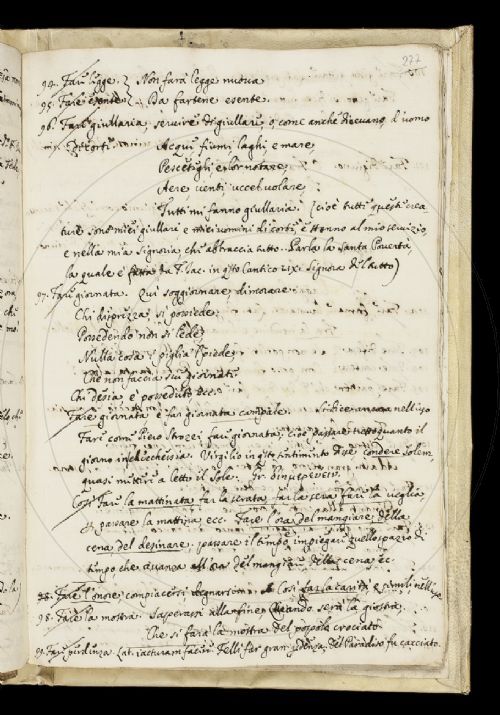 277
94. Fare legge. Non farà legge nuova
95. Fare esente. Da fartene esente.
96. Fare giullaria, servire di giullari o, come anche dicevano, d'uomo
di corti. Acqui fiumi laghi e mare,
Pescetegli e lor notare,
Aere venti uccei volare
Tutti mi fanno giullaria. (cioè tutti questi crea-
ture sono miei giullari e miei uomini di corti, e stanno al mio servizio,
e nella mia signoria, chi abbraccia tutto. Parla la santa Povertà
la quale è da F. Iac. in questo Cantico Signora del tutto)
97. Fare giornata. Qui soggiornare, dimorare
Chi disprezza, si possiede:
Possedendo non si lede:
Nulla cosa piglia 'l piede,
Che non faccia sue giornati.
Chi desia, è posseduto ecc.
Fare giornata e far giornata campale. Si dice ancora nell'uso
Fare com Piero Strozzi fare giornata, cioè passare tutto quanto il
giorno in Virgilio in questo sentimento disse condere solem
quasi mettere a letto il Sole.
Così Fare la mattinata far la serata far la sera fare la veglia
passare la mattina ecc. Fare l'ora del mangiare, della
cena del desinare, passare il tempo impiegare quello spazio di
tempo che avanza all'ora del mangiare della cena ecc.
Fare l'onore compiacersi degnarsi Così far la carità e simili nell'uso
98. Fare la mostra. Saperassi alla fine Quando serà la giostra,
Che si farà la mostra del popolo crociato.
99. Fare perdenza. Lat. iacturam facere. Felli far gran perdenza, Del Paradiso fu cacciato.